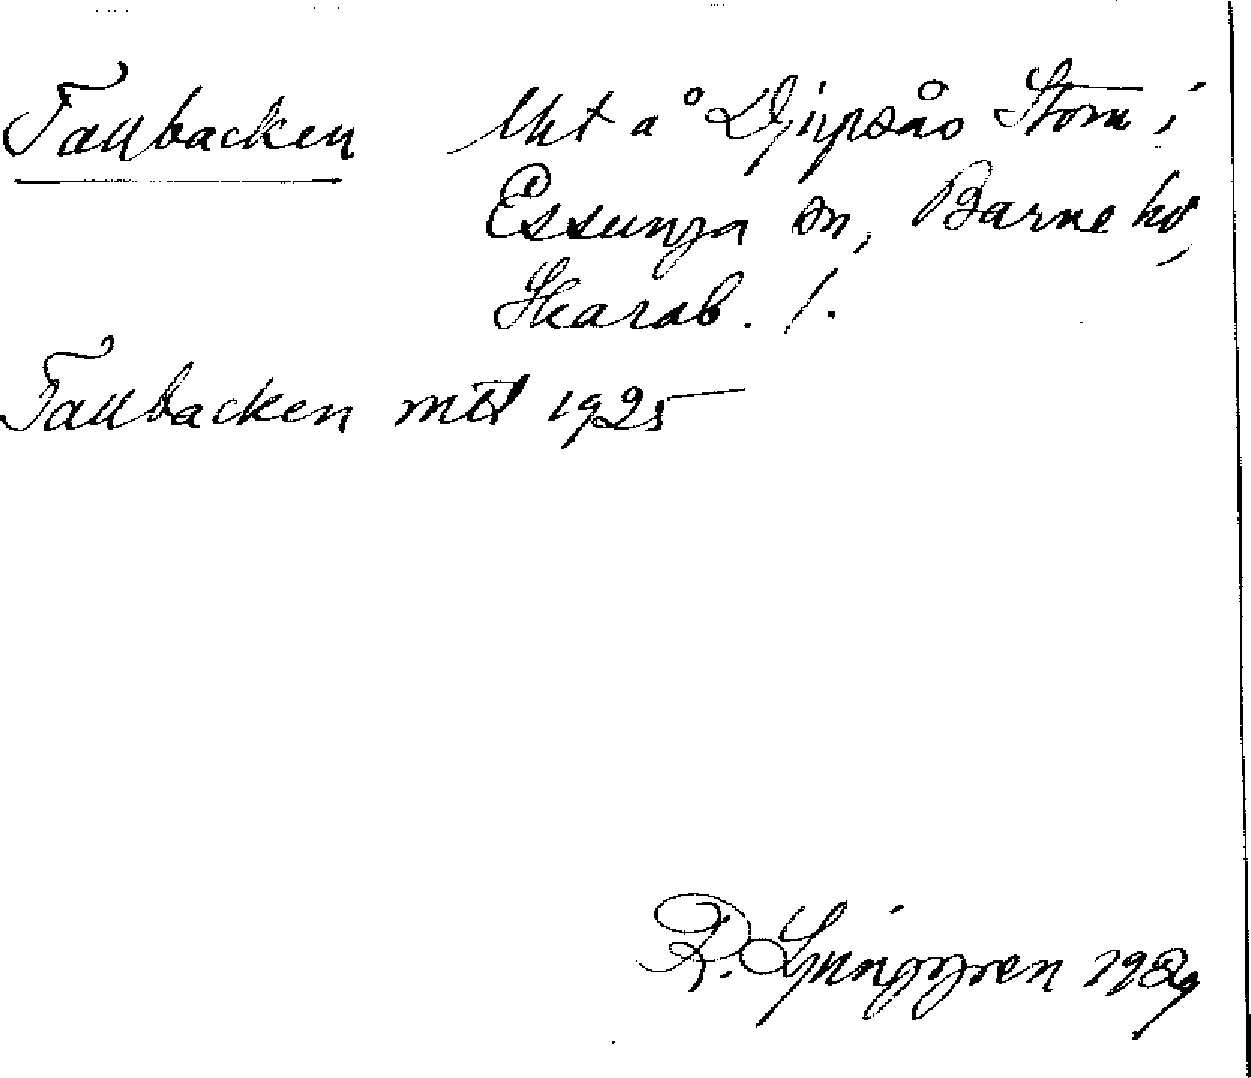 Tallbacken Uht å Djupsås Storn i
Essunga sn, Barne hd,
Skarab. l.
Tallbacken mtl 1925
R. Ljunggren 1929